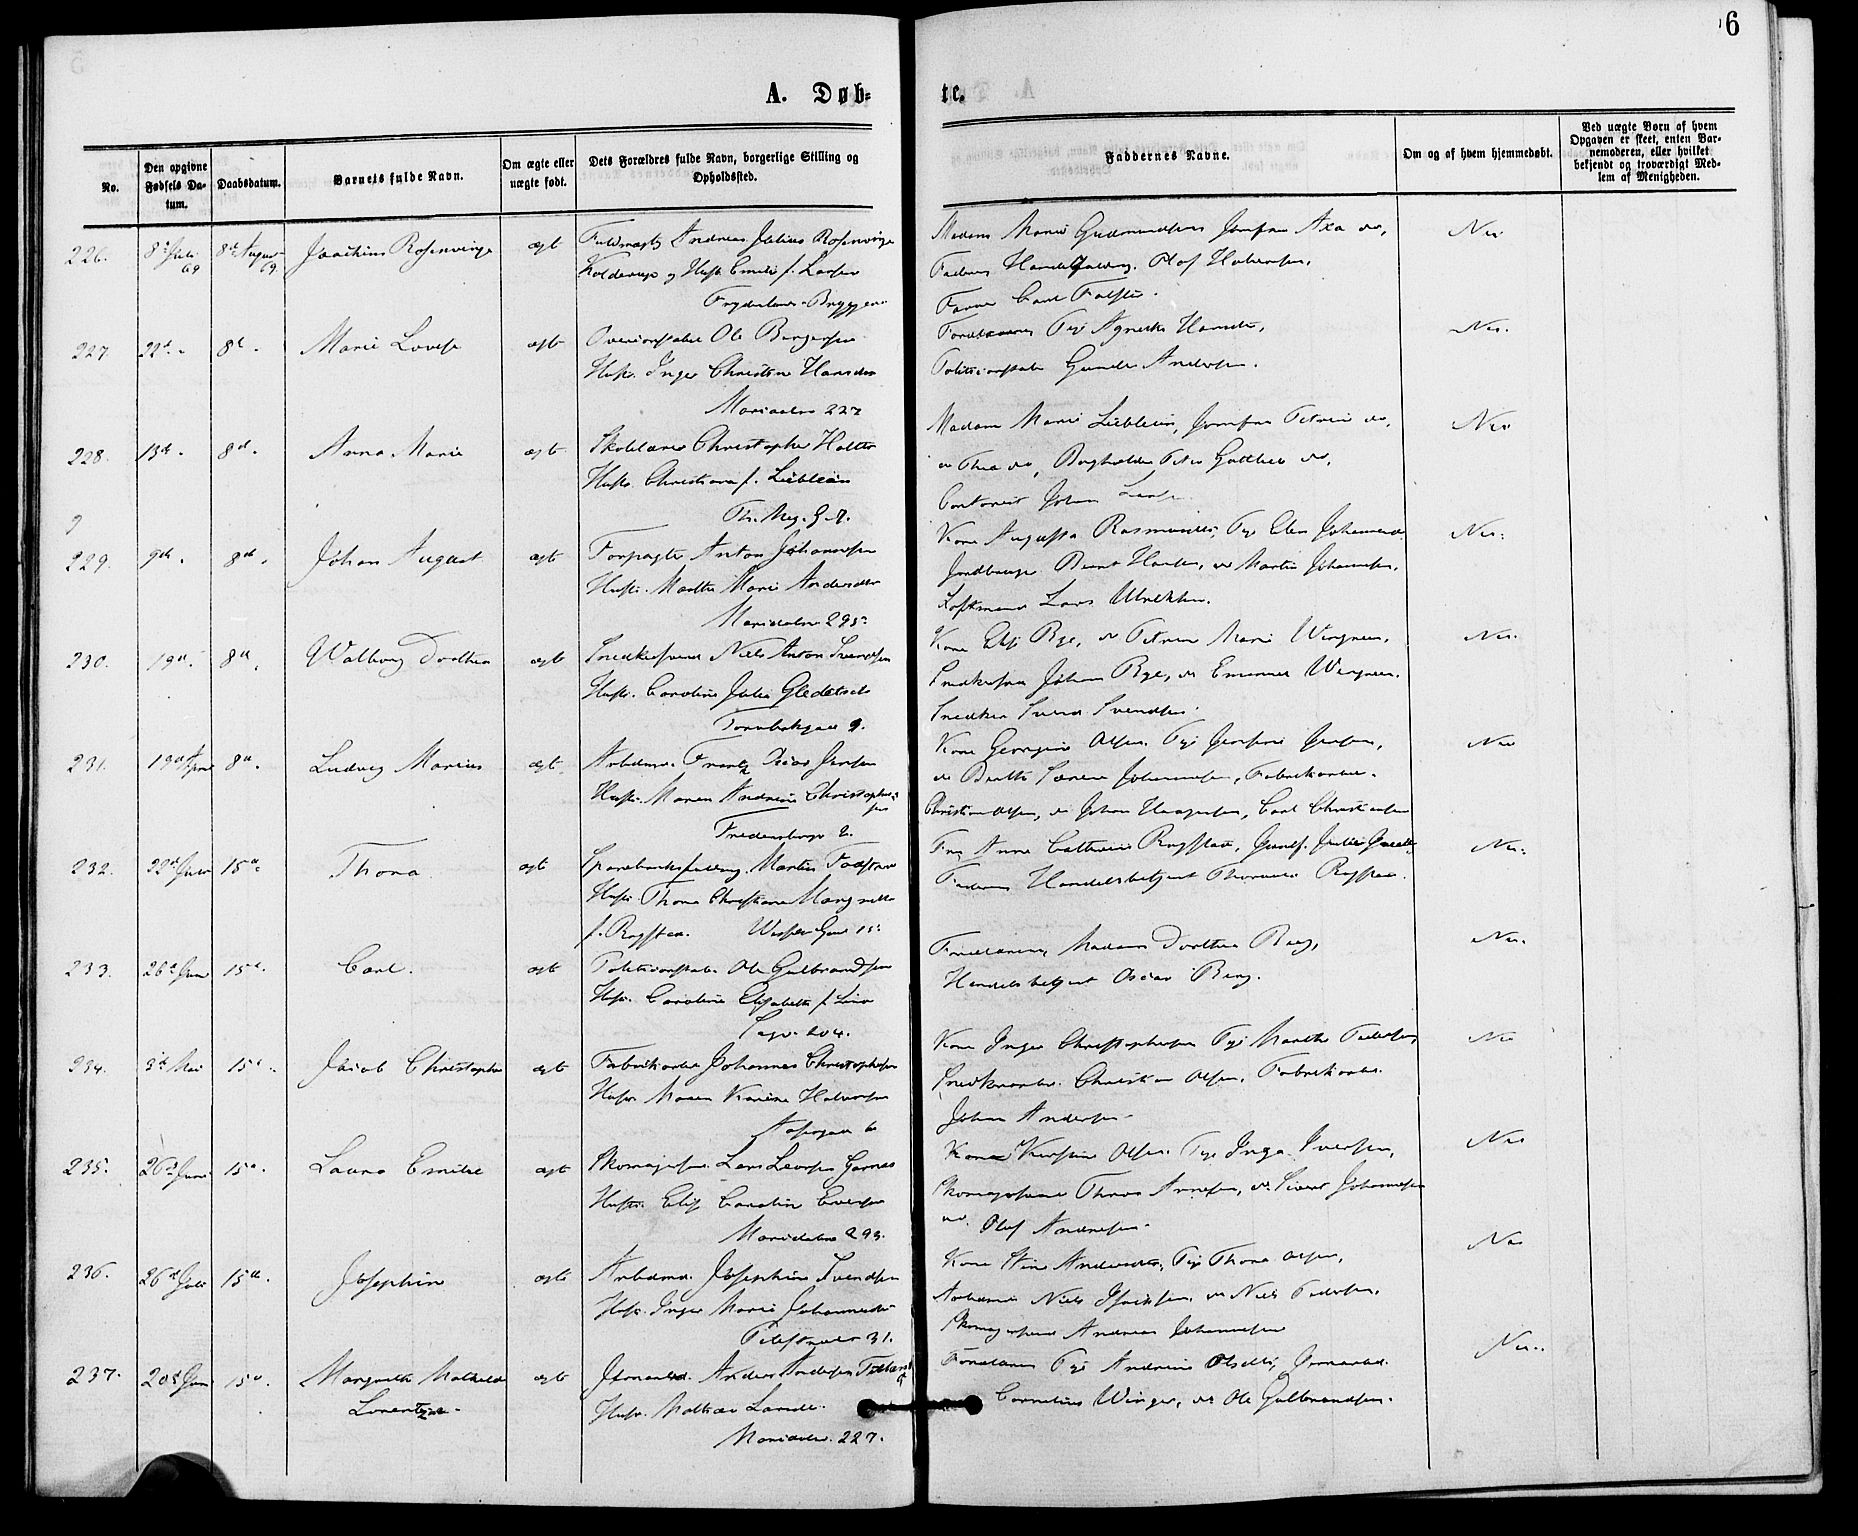 6
A. Døb-
te.
No.
Den opgivne Fødsels Datum.
Daabsdatum.
Barnets fulde Navn.
Om ægte eller uægte født.
Dets Forældres fulde Navn, borgerlige Stilling og Opholdssted.
Faddernes Navne.
Om og af hvem hjemmedøbt.
Ved uægte Børn af hvem Opgaven er skeet, enten Barnemoderen, eller hvilket bekjendt og troværdigt Medlem af Menigheden.
226. 8de Juli 69 8de August 69. Joachim Rosenvinge ægte Fuldmægtg Andreas Julius Rosenvinge
Kolderup og Hustr Emilie f. Larsen
Madam Marie Gudmundsen Jomfru Axa do,
Faderen Olaf Halvorsen,
Farver Carl
Nei
227. 22d. 8d. Marie Lovise ægte Overconstabel Ole Bergersen
Hustr. Inger Christine Hansdr
Maridalen 227
Forældrene Pige Agnethe Hansdr,
Politiconstabel Gunder Andersen.
Nei.
228. 13d. 8d. Anna Marie ægte Skolelærer Christopher Holter
Hustr. Christiana f. Lieblein
Th. Mey. G. 7.
Madam Marie Lieblein, Jomfru Petrea do,
do Thea do, Bogholder Peter Gottlieb do,
Contorist Johan
Nei
229. 9de. 8de. Johan August ægte Forpagter Anton Johannesen
Hustr. Marthe Marie Andersdtr
Maridalen 295
Kone Augusta Rasmusdtr, Pige Elen Johannesdr
Jordbruger Bernt Hansen, do Martin Johannesen,
Lars
Nei.
230. 19d. 8d. Walborg Dorthea ægte Snedkersvend Niels Anton Svendsen
Hustr. Caroline Julie
9.
Kone Elise Bye, do Petrea Marie Wingreen,
Snedkersvend Johan Bye, do Emanuel Wingreen.
Snedker Svend Svendsen.
Nei.
231. 19d April 8d. Ludvig Marius ægt. Arbdmd. Frantz Oscar Jensen
Hustr. Maren Andrine Christophersen
Fredensborgv 2.
Kone Georgine Olsen. Pige Josefine Jensen,
do Berthe Karen Johannesen, Fabrikarbeid.
Christian Olsen, do Johan Haagensen, Carl Christiansen
Nei
232. 22d Juni 15d. Thora ægte Sparebanksfuldmg. Martin
Hustr Thora Christiane Margrethe
f. Ragstad.
Fru Anne Cathrine Ragstad,
Faderen Handelsbetjent Ragstad.
Nei.
233. 26d Juni 15d. Carl. ægt Politiconstabel Ole Gulbrandsen
Hustr. Caroline Elisabeth f. Lie
204.
Forældrene, Madam Dorthea Berg,
Handelsbetjent Oscar Berg.
Nei.
234. 3d Mai 15d. Jacob Christopher ægt Fabrikarbei Johannes Christophersen
Hustr Maren Karine Halvorsen
Kone Inger Christophersen Pige Marthe Pedersen
Snedkerarbei. Christian Olsen. Fabrikarbei.
Johan Andersen.
Nei
235. 26d Juni 15d. Laura Emilie ægt Skomagersv. Lars Larsen Garnæs
Hustr. Elise Caroline Eversen
Maridalen 293.
Kone Kirstine Olsen. Pige Inga Iversen,
Skomagersvend Thomas Arnesen, do. Sivert Johannesen
do. Olaf Andresen.
Nei
236. 26d Juli 15d. Josephine ægte Arbdmd. Josephine Svendsen
Hustr. Inger Marie Johannesdr
Pilestræde 31.
Kone Stine Andersdtr, Pige Thora Olsen,
Arbdmd Niels Isaksen, do Niels Pedersen,
Skomagersvend Andreas Johannesen
Nei
237. 20d Juni 15d. Margrethe Mathilde ægt Jernarbd. Anders Andersen
Lorentze.
Hustr. Mathea Larsdr.
Maridalen. 227.
Forældrene Pige Andrine Olsdtr, Jernarbd.
Cornelius Winger, do Ole Gulbrandsen.
Nei.